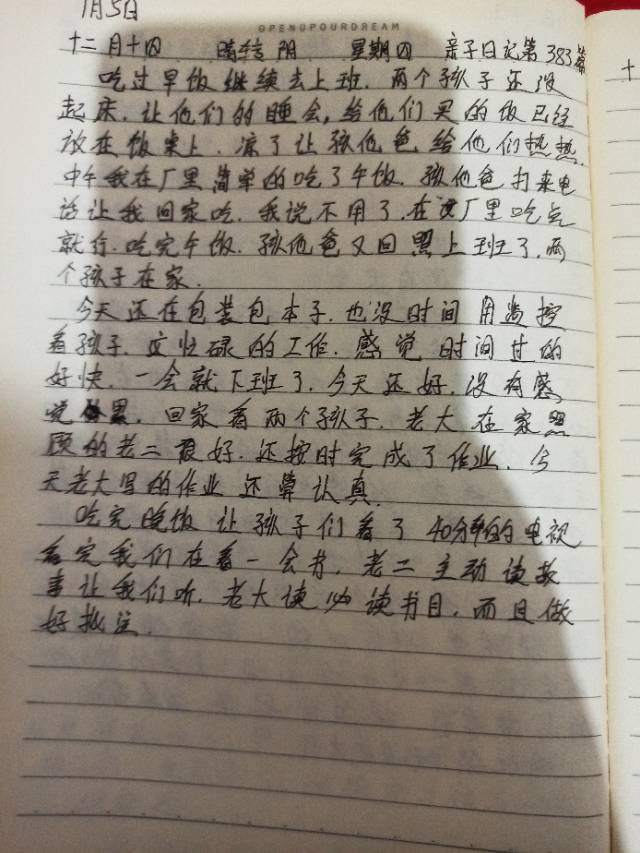 1月5日
OPENUPOURDREAM
十二月十四 晴转阴 星期四 亲子日记第383篇
吃过早饭继续去上班.两个孩子还没
起床.让他们的睡会,给他们买的饭已经
放在饭桌上.凉了让孩他爸给他们热热.
中午我在厂里简单的吃了午饭.孩他爸打来电
话让我回家吃.我说不用了.在厂里吃点
就行.吃完午饭.孩他爸又回 上班了.两
个孩子在家.
今天还在包装包本子.也没时间用监控
看孩子.这忙碌的工作.感觉时间过的
好快.一会就下班了.今天还好.没有感
觉累.回家看两个孩子.老大在家照
顾的老二很好.还按时完成了作业.今
天老大写的作业还算认真.
吃完晚饭让孩子们看了40分钟的电视
看完我们在看一会书.老二主动读故
事让我们听.老大读必读书目.而且做
好批注.
十